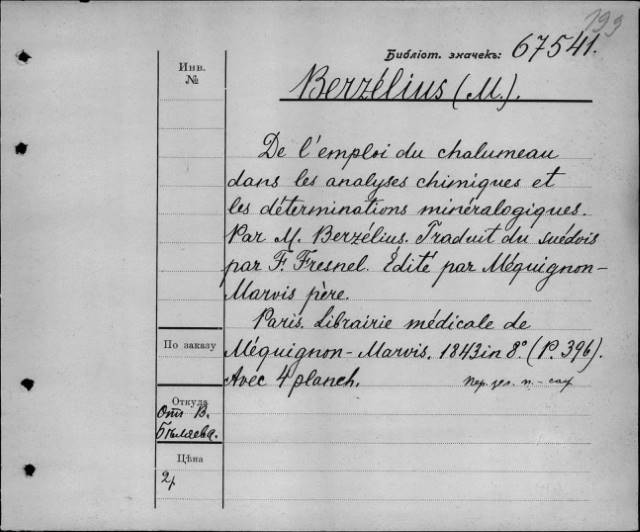 199
Библіот. значекъ: 67541.
Инв.
№
Berzélius (M.).
De l'emploi du chalumeau
dans les analyses chimiques et
les déterminations minéralogiques.
Par M. Berzélius. Traduit du suédois
par F. Fresnel. Édité par Méquignon-
Marvis père.
Paris. Librairie médicale de
По заказу
Méquignon-Marvis. 1843 in 8° (P. 396).
Avec 4 planch.
Откуда
Отъ В.
Бѣляева.
Цѣна
2р